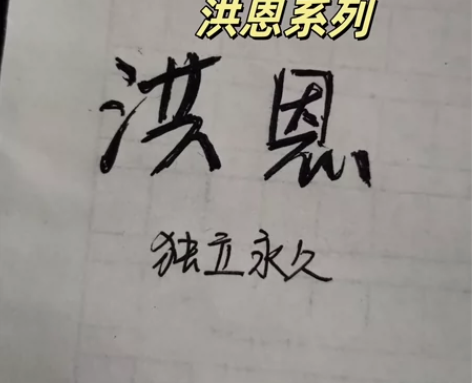 洪恩系列
洪恩
独立永久